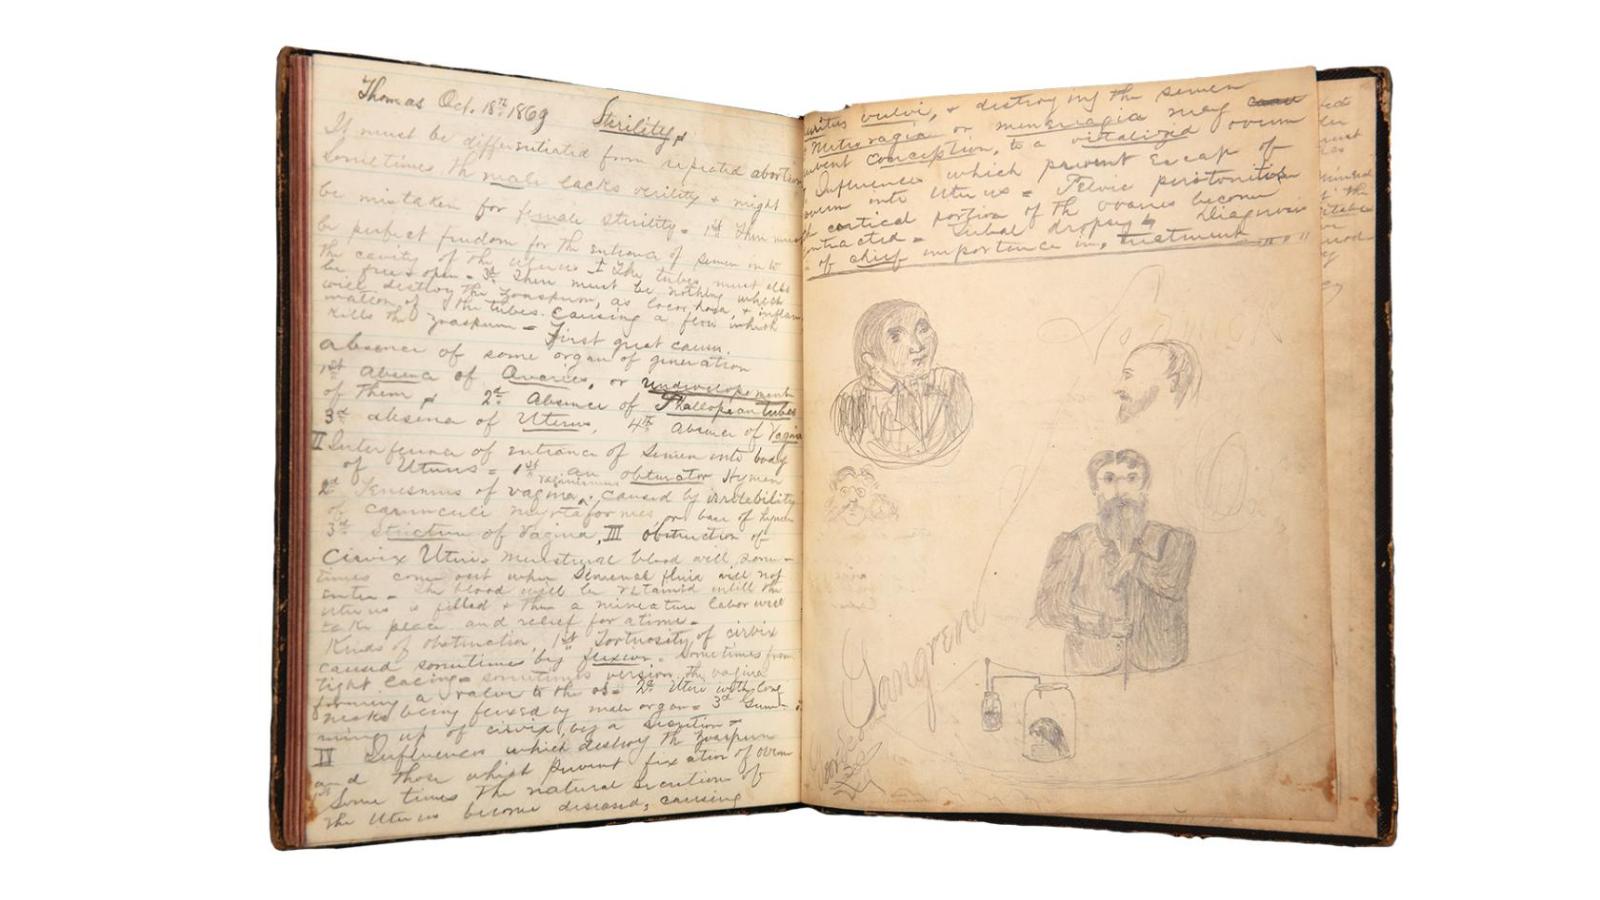 Thomas Oct. 18th 1869 Sterility,
It must be differentiated from repeated abortion
Sometimes the male lacks virility & might
be mistaken for female sterility = 1st There must
be perfect freedom for the entrance of semen into
the cavity of the uterus & The tubes must also
be free & open = 3d There must be nothing which
will destroy the zoaspum, as leucorrhoea, & inflam
mation of the tubes causing a flow which
kills the zoaspum =
First great cause.
absence of some organ of generation
1st Absence of Ovaries, or undevelopement
of them, 2d Absence of Phallopean tubes
3d absence of Uterus, 4th Absence of Vagina
II Interference of entrance of Semen into body
of Uterus = 1st an obturator Hymen
vaginismus
2d Tenesmus of vagina, caused by irritebility
of carunculi myrtaformes or base of hymen
3d Stricture of Vagina, III obstruction of
Cirvix Uteri. menstrual blood will some=
times come out when Semenal fluid will not
enter = The blood will be retained untill the
uterus is filled & then a miniature labor will
take place and relief for a time =
Kinds of obstruction 1st Tortuosity of cirvix
caused sometimes by flexion = Sometimes from
tight lacing = sometimes version, the vagina
forming a valve to the os = 2d Uteri with long
necks being flexed by male organ = 3d Gum=
ming up of cirvix by a secretion =
IV Influences which destroy the zoaspum
and those which prevent fixation of ovum
1st Some times the natural secretions of
the uterus become diseased, causing
vulvi, & destroying the semen
Metroragia or menoragia may
conception, to a vitalized ovum
Influences which prevent Escap of
ovum into uterus = Pelvic peritonitis
cortical portion of the ovaries become
contracted = Tubal dropsy Diagnosis
of chief importance in, treatment
Gangrene